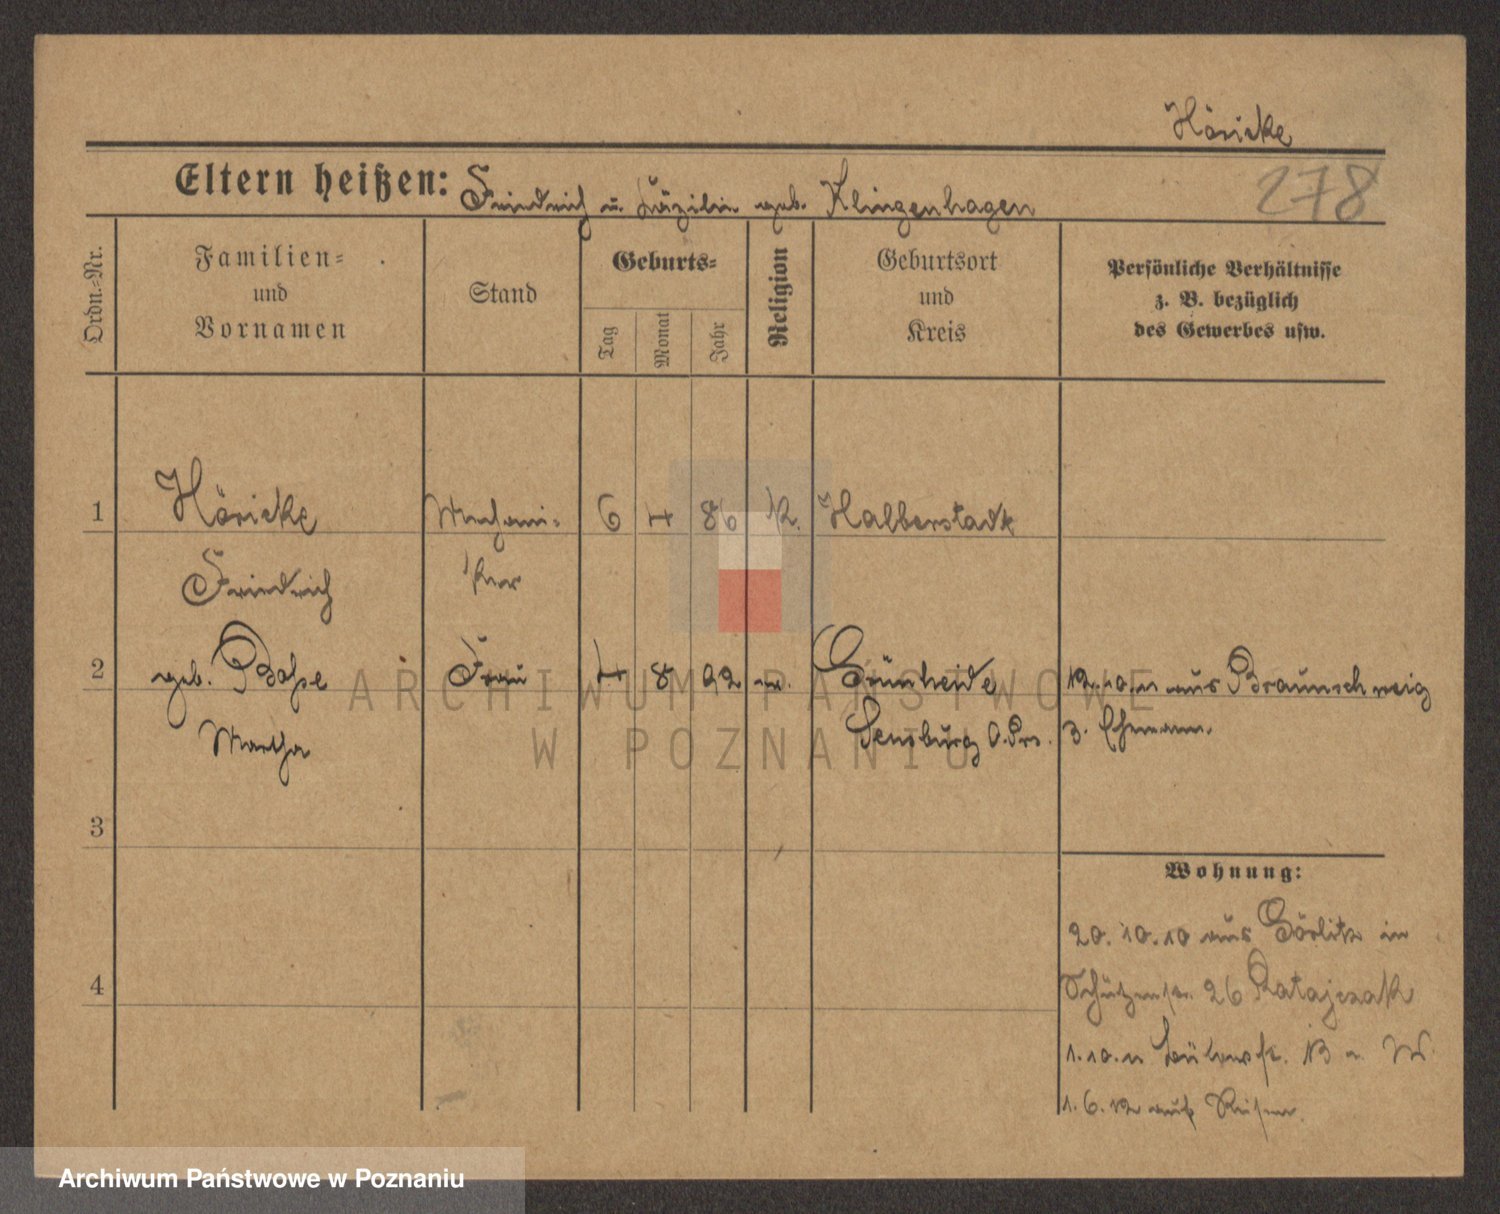 Höricke
Eltern heißen: Friedrich u. Cäzilie geb. Klingenhagen
278
Ordn.-Nr.
Familien-
und
Vornamen
Stand
Geburts-
Tag
Monat
Jahr
Religion
Geburtsort
und
Kreis
Persönliche Verhältnisse
z. B. bezüglich
des Gewerbes usw.
1 Höricke Mechani- 6 4 86 k. Halberstadt
Friedrich ker
2 geb. Frau 4 8 92 ev. Grünheide 12.10.11 aus Braunschweig
Martha Sensburg O.Prs. z. Ehemann.
3
4
Wohnung:
20.10.10 aus Görlitz in
Schützenstr. 26 Ratajczak
1.10.11 13 a W.
1.6.12 auf Reisen.
ARCHIWUM PAŃSTWOWE
W POZNANIU
Archiwum Państwowe w Poznaniu